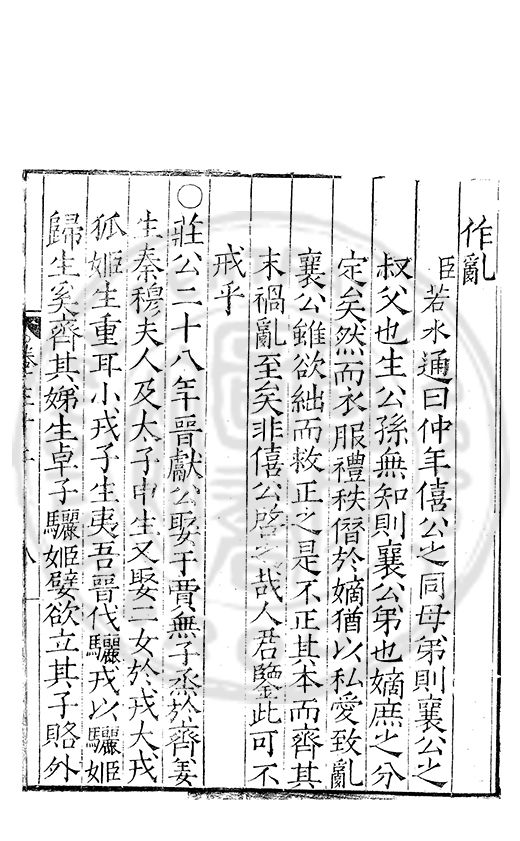 作亂
臣若水通曰仲年僖公之同母弟則襄公之
叔父也生公孫無知則襄公弟也嫡庶之分
定矣然而衣服禮秩僭於嫡猶以私愛致亂
襄公雖欲絀而救正之是不正其本而齊其
末禍亂至矣非僖公啓之哉人君鑒此可不
戒乎
○莊公二十八年晉獻公娶于賈無子烝於齊姜
生秦穆夫人及太子申生又娶二女於戎大戎
狐姬生重耳小戎子生夷吾晉伐驪戎以驪姬
歸生奚齊其娣生卓子驪姬嬖欲立其子賂外